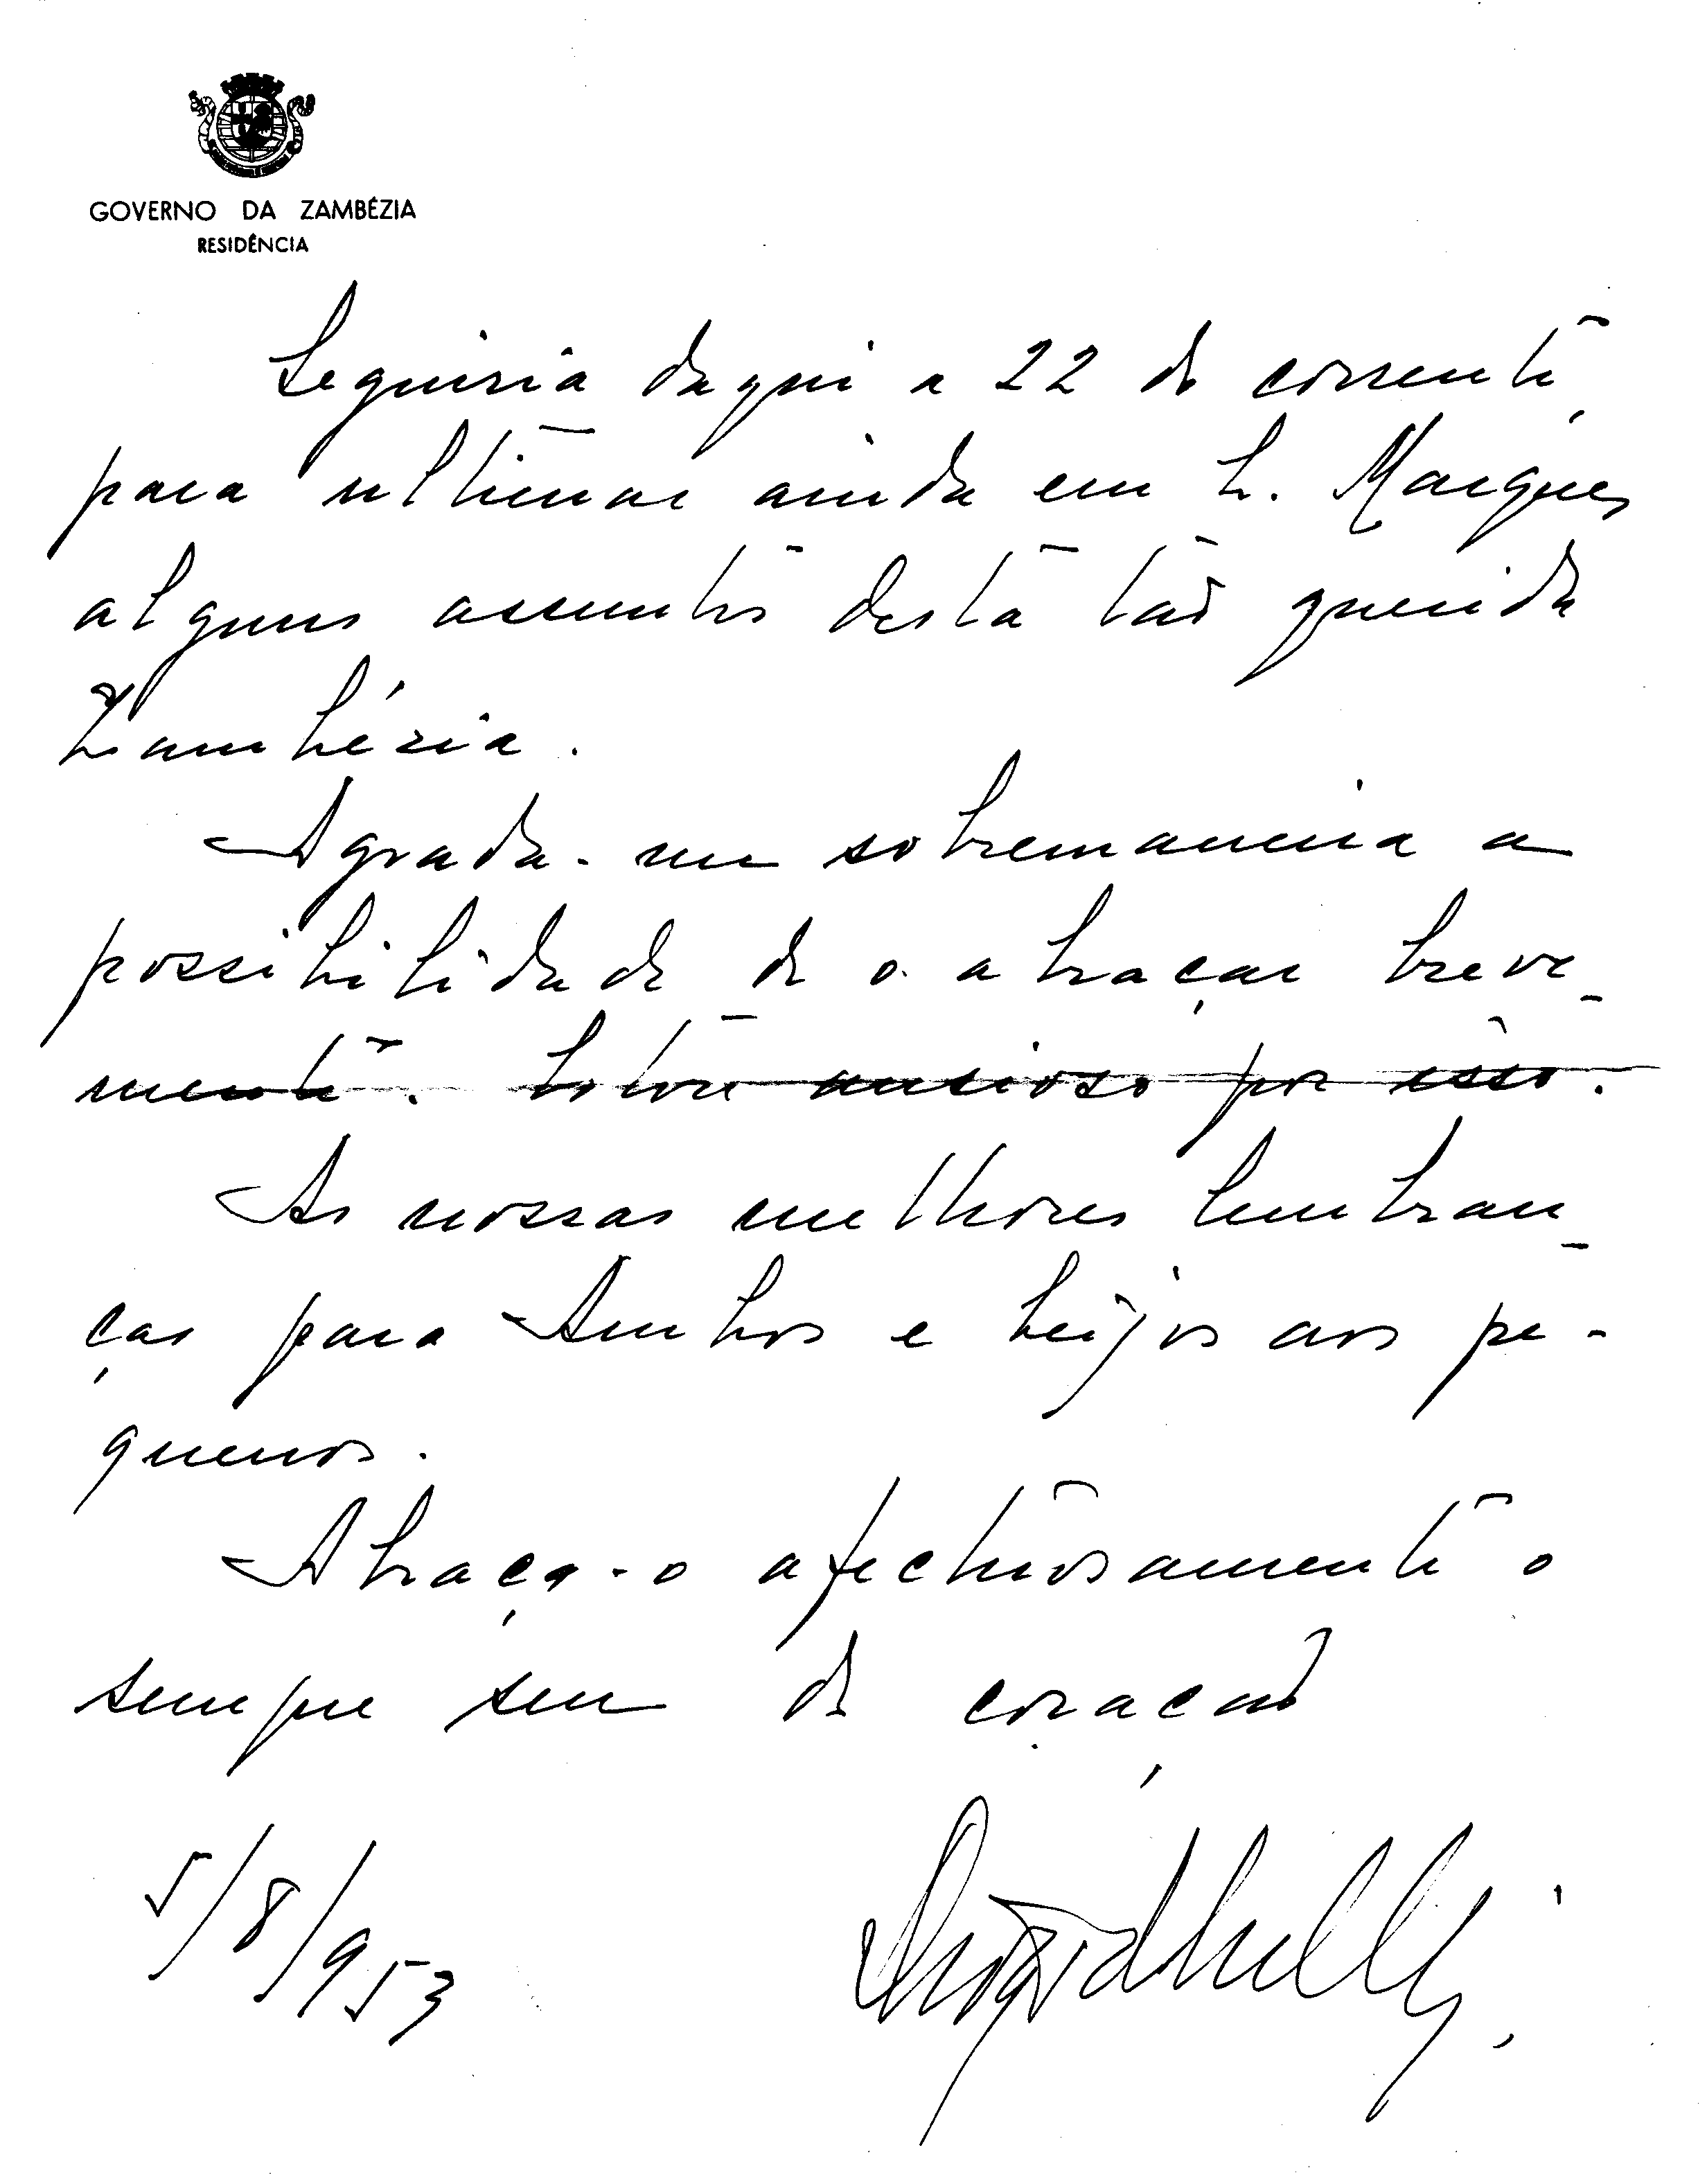 GOVERNO DA ZAMBÉZIA
RESIDÊNCIA
Seguiria daqui a 22 do corrente,
para ultimar ainda em L. Marques
alguns assuntos desta tão querida
Zambézia.
Agrada-me sobremaneira a
possibilidade de o abraçar breve-
mente. ansioso por isso.
As nossas melhores lembran-
ças para Ambos e beijos aos pe-
quenos.
Abraça-o afectuosamente o
sempre seu do coração
5/8/953